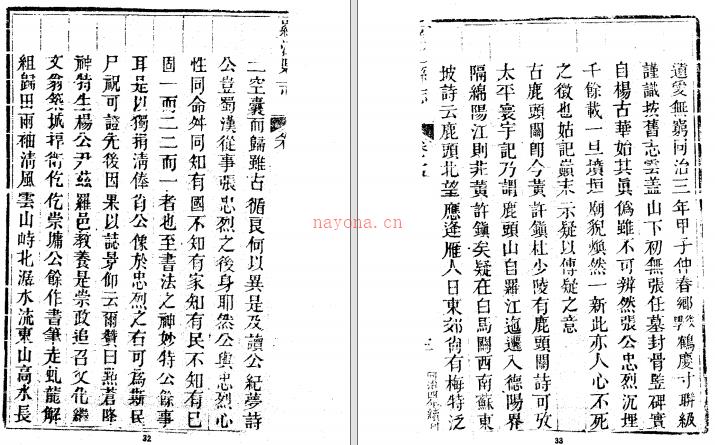 羅江縣志
二空囊而歸雖古循良何以異是及讀公紀夢詩
公豈蜀漢從事張忠烈之後身耶然公與忠烈心
性同命舛同知有國不知有家知有民不知有己
固一而二二而一者也至書法之神妙特公餘事
耳是以獨捐淸俸肖公像於忠烈之右可爲斯民
尸祝可證先後因果以誌景仰云爾贊曰熱若降
神特生楊公尹茲羅邑敎養是崇政追召父化繼
文翁築城捍衛仡仡崇墉公餘作書筆走虬龍解
組歸田兩袖淸風雲山峙北潺水流東山高水長
32
遺愛無窮同治三年甲子仲春鄉鶴慶寸聯級
謹識按舊志雲蓋山下初無張任墓封骨竪碑實
自楊古華始其眞僞雖不可辨然張公忠烈沉埋
千餘載一旦墳垣廟貌煥然一新此亦人心不死
之徵也姑記巓末示疑以傳疑之意
古鹿頭關卽今黃許鎭杜少陵有鹿頭關詩可攷
太平寰宇記乃謂鹿頭山自羅江迤邐入德陽界
隔綿陽江則非黃許鎭矣疑在白馬關西南蘇東
坡詩云鹿頭北望應逢雁人日東郊尙有梅特泛
33
nayona.cn